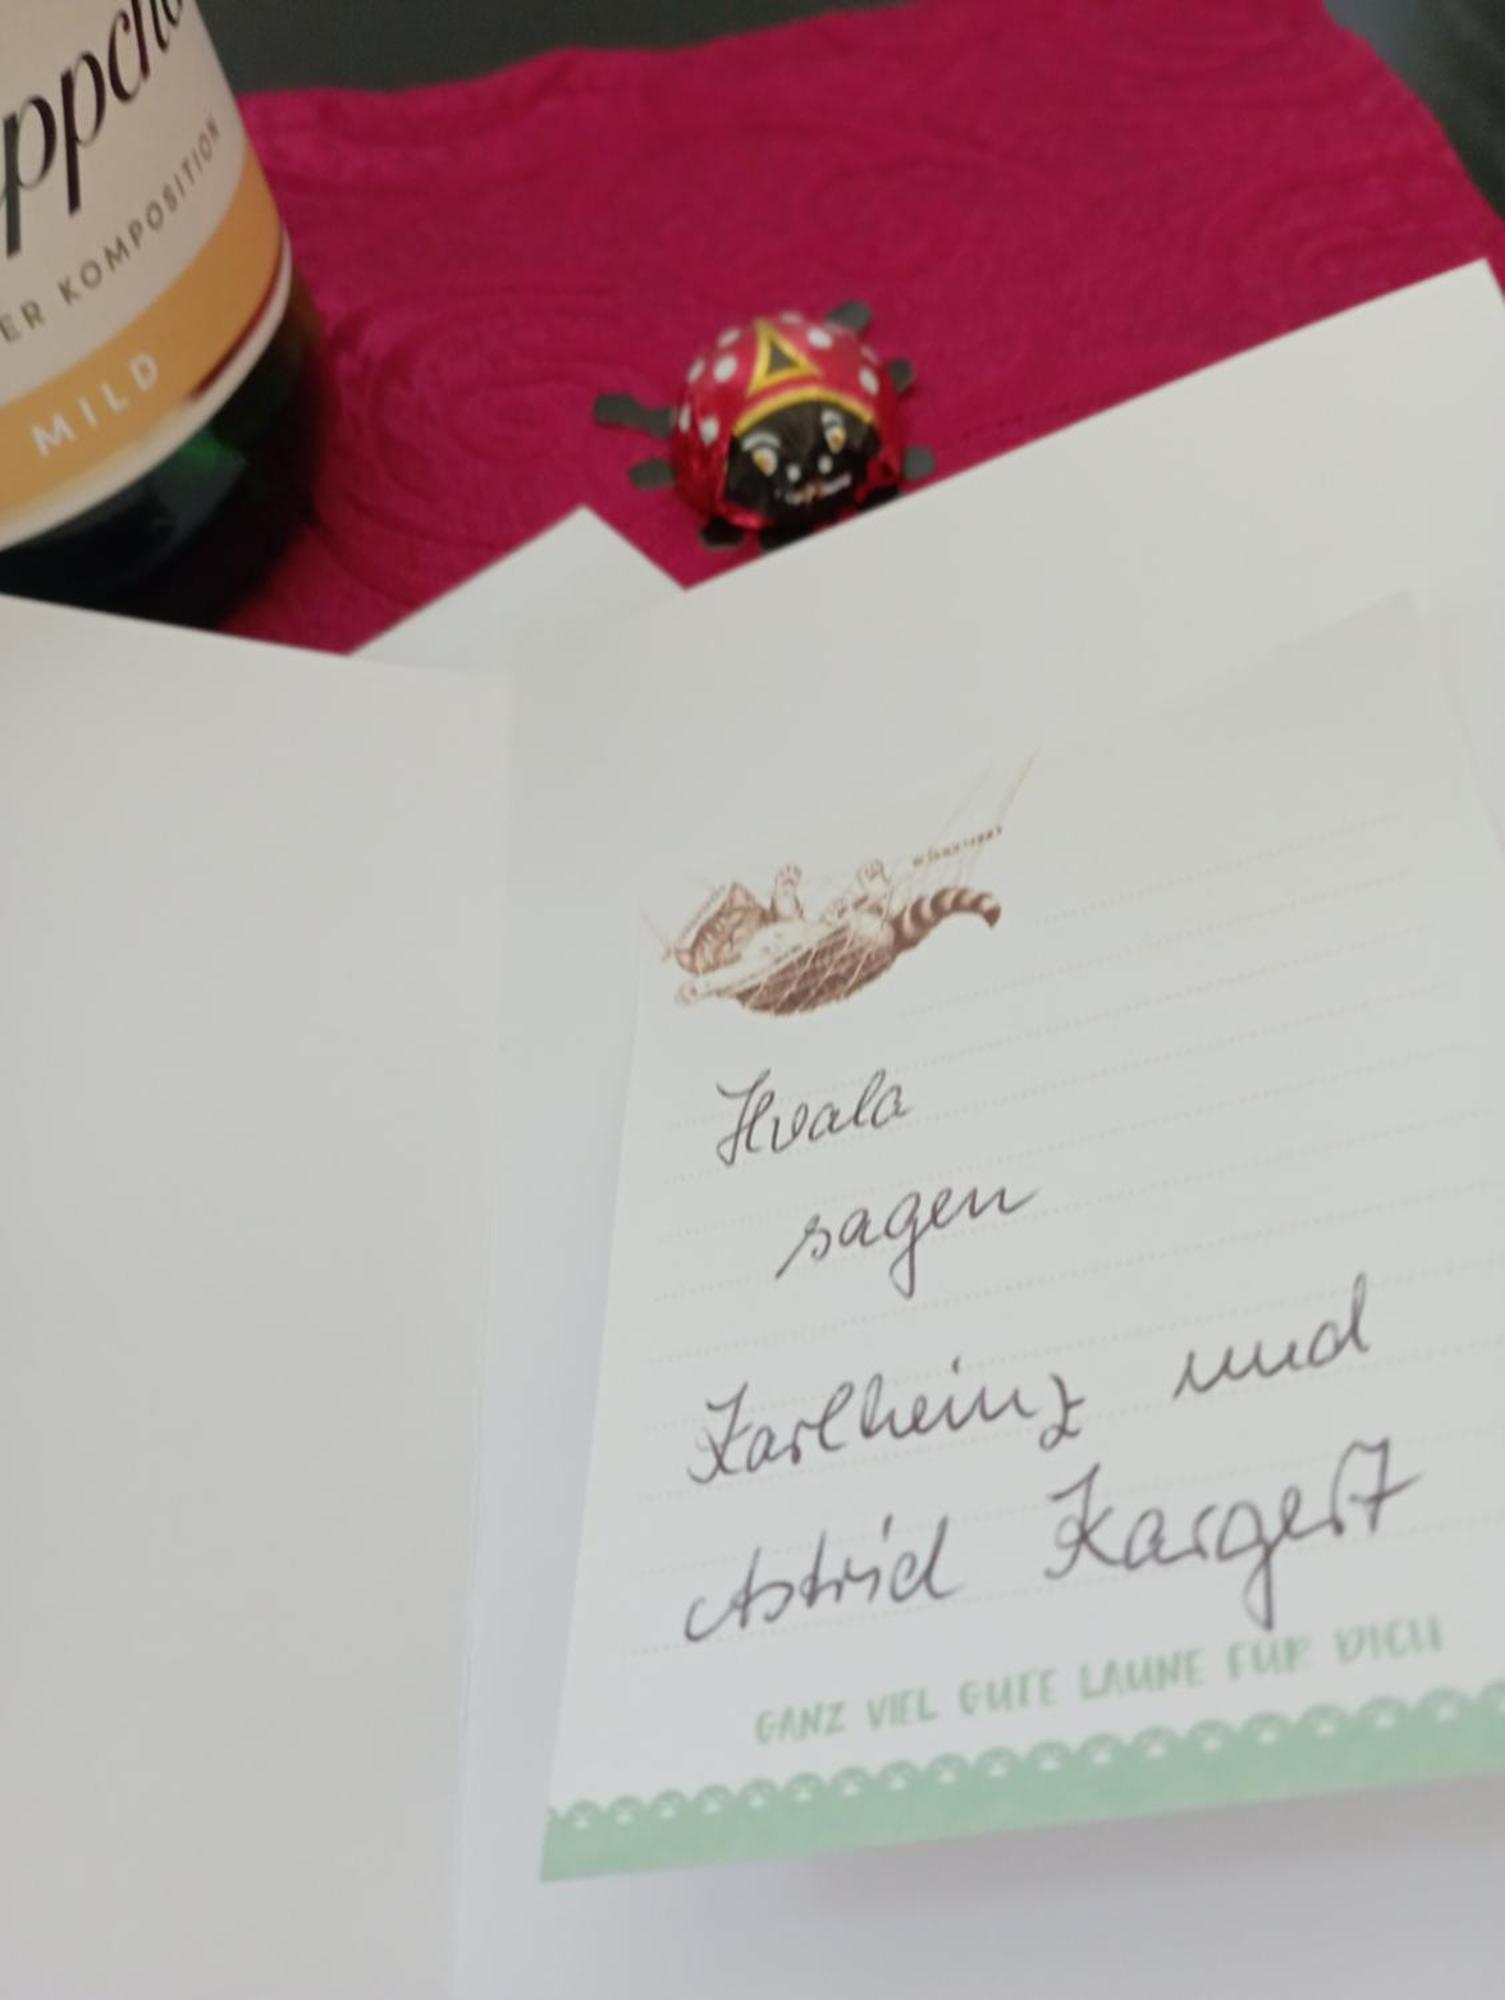 ppche
ER KOMPOSITION
MILD
Hvala
sagen
Karlheinz und
Astrid Kargert
GANZ VIEL GUTE LAUNE FÜR DICH